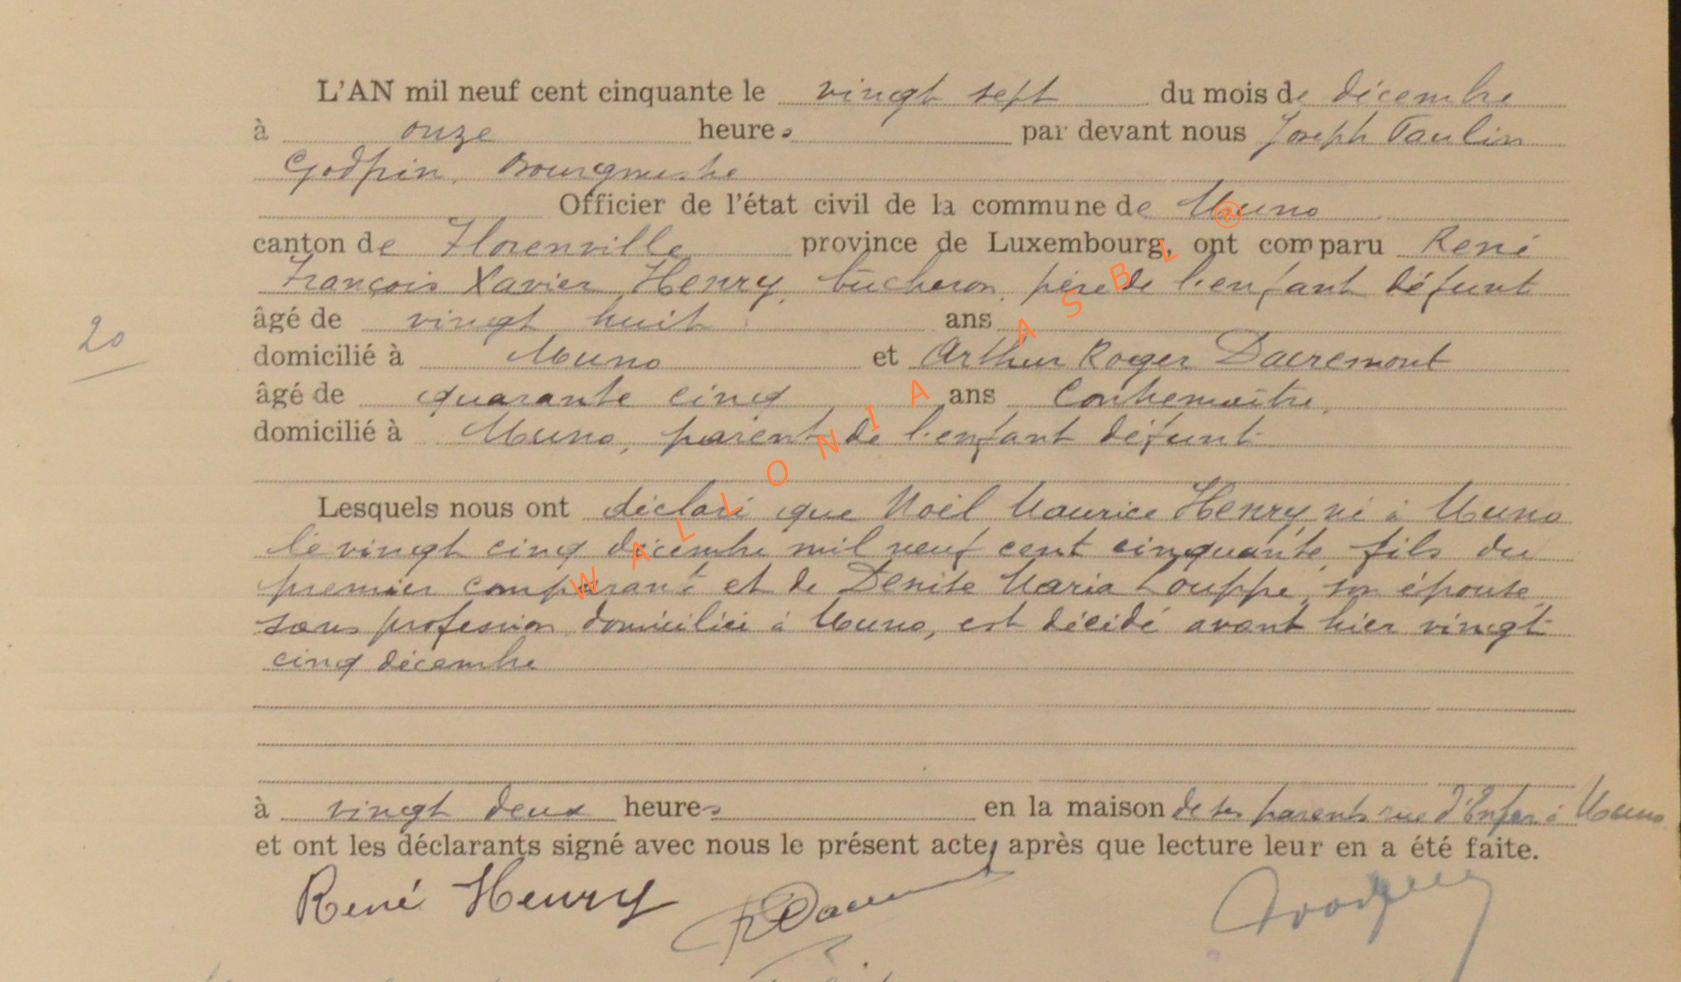 L'AN mil neuf cent cinquante le vingt sept du mois de décembre
à onze heures par devant nous Joseph Paulin
Godfrin, Bourgmestre
Officier de l'état civil de la commune de Muno
canton de Florenville province de Luxembourg, ont comparu René
François Xavier Henry, bûcheron, père de l'enfant défunt
âgé de vingt huit ans
20
domicilié à Muno et Arthur Roger Dacremont
âgé de quarante cinq ans Contremaître,
domicilié à Muno, parent de l'enfant défunt
Lesquels nous ont déclaré que Noël Maurice Henry né à Muno
le vingt cinq décembre mil neuf cent cinquante, fils du
premier comparant et de Denise Maria Louppe, son épouse,
sans profession, domiciliés à Muno, est décédé avant hier vingt
cinq décembre
à vingt deux heures en la maison de ses parents rue d'Enfer à Muno
et ont les déclarants signé avec nous le présent acte, après que lecture leur en a été faite.
René Henry
WALLONIA ASBL ®